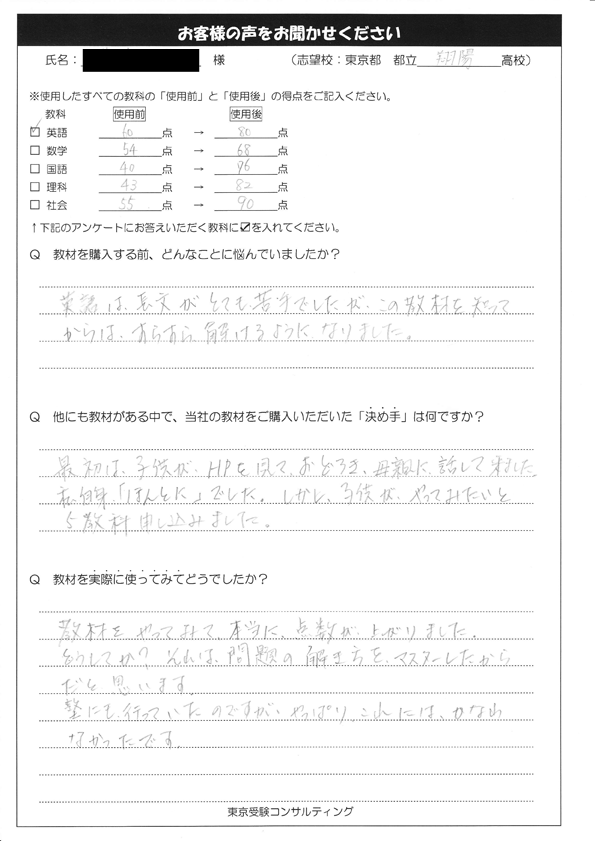 お客様の声をお聞かせください
氏名： 様 （志望校：東京都 都立 翔陽 高校）
※使用したすべての教科の「使用前」と「使用後」の得点をご記入ください。
教科 使用前 使用後
☑ 英語 60 点 → 80 点
□ 数学 54 点 → 68 点
□ 国語 40 点 → 96 点
□ 理科 43 点 → 82 点
□ 社会 55 点 → 90 点
↑下記のアンケートにお答えいただく教科に☑を入れてください。
Q 教材を購入する前、どんなことに悩んでいましたか？
英語は、長文がとても苦手でしたが、この教材を知って
からは、すらすら解けるようになりました。
Q 他にも教材がある中で、当社の教材をご購入いただいた「決め手」は何ですか？
最初は、子供が、HPを見て、おどろき、母親に、話して来ました。
私自身、「ほんとに」でした。しかし、子供が、やってみたいと
5教科申し込みました。
Q 教材を実際に使ってみてどうでしたか？
教材をやってみて、本当に、点数が、上がりました。
どうしてか？それは、問題の解き方を、マスターしたから
だと思います。
塾にも、行っていたのですが、やっぱりこれには、かなわ
なかったです。
東京受験コンサルティング